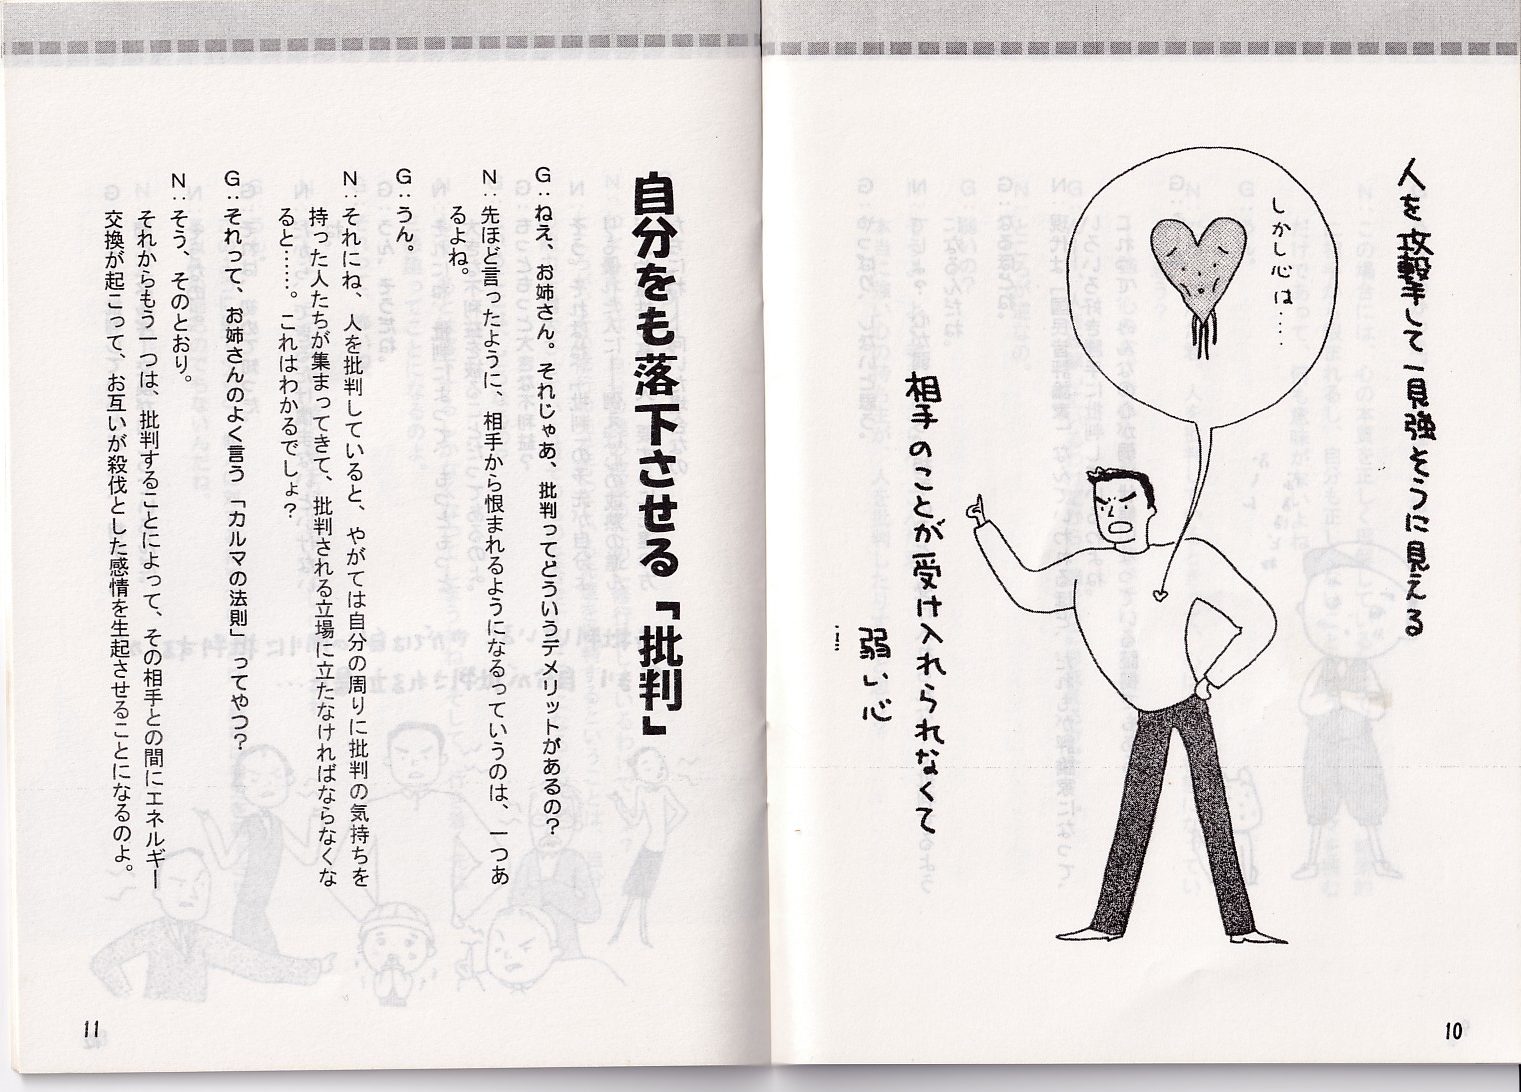 人を攻撃して一見強そうに見える
しかし心は‥‥
相手のことが受け入れられなくて
弱い心
10
自分をも落下させる「批判」
G:ねえ、お姉さん。それじゃあ、批判ってどういうデメリットがあるの?
N:先ほど言ったように、相手から恨まれるようになるっていうのは、一つあ
るよね。
G:うん。
N:それにね、人を批判していると、やがては自分の周りに批判の気持ちを
持った人たちが集まってきて、批判される立場に立たなければならなくな
ると……。これはわかるでしょ?
G:それって、お姉さんのよく言う「カルマの法則」ってやつ?
N:そう、そのとおり。
それからもう一つは、批判することによって、その相手との間にエネルギー
交換が起こって、お互いが殺伐とした感情を生起させることになるのよ。
11